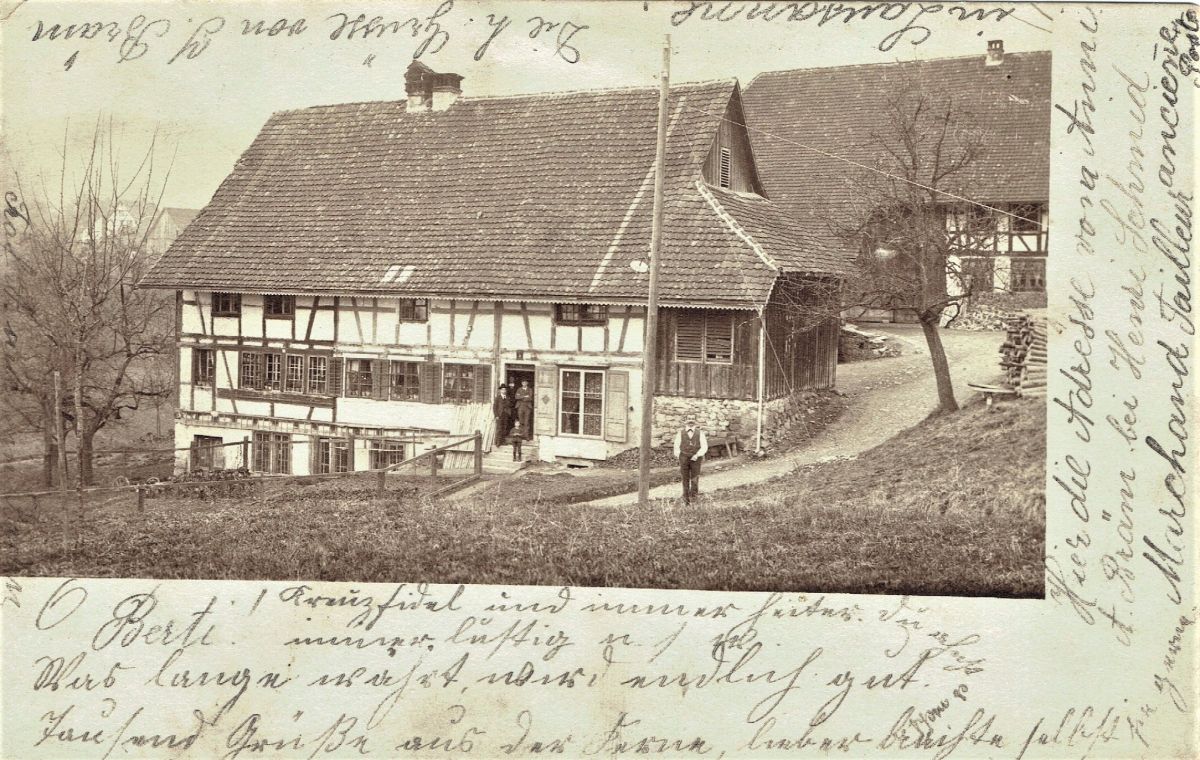 O Berti! Kreuzfidel und immer heiter. du
immer lustig u. s. w.
Was lange währt, wird endlich gut.
Tausend Grüße aus der Ferne, lieber selbst
gerne
Hier die Adresse von Anna
A. Bräm bei Henri Schmid
Marchand Tailleur ancienne Poste
in Lausanne
Die h. Grüsse von J. Bräm